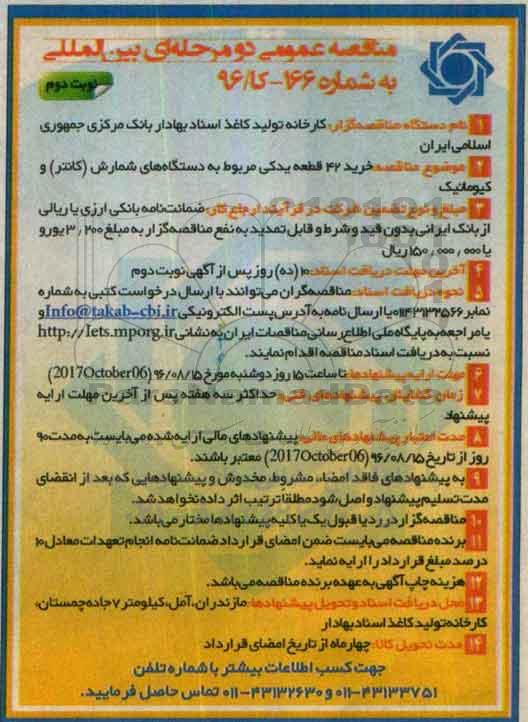 مناقصه عمومی دو مرحله‌ای بین‌المللی
به شماره ۱۶۶-کا/۹۶
نوبت دوم
۱ نام دستگاه مناقصه‌گزار: کارخانه تولید کاغذ اسناد بهادار بانک مرکزی جمهوری
اسلامی ایران
۲ موضوع مناقصه: خرید ۴۲ قطعه یدکی مربوط به دستگاه‌های شمارش (کانتر) و
کیوماتیک
۳ مبلغ و نوع تضمین شرکت در فرآیند ارجاع کار: ضمانت‌نامه بانکی ارزی یا ریالی
از بانک ایرانی بدون قید و شرط و قابل تمدید به نفع مناقصه‌گزار به مبلغ ۳٫۲۰۰ یورو
یا ۱۵۰٫۰۰۰٫۰۰۰ ریال
۴ آخرین مهلت دریافت اسناد: ۱۰ (ده) روز پس از آگهی نوبت دوم
۵ نحوه دریافت اسناد: مناقصه‌گران می‌توانند با ارسال درخواست کتبی به شماره
نمابر ۰۱۱۴۳۱۳۲۵۶۶ یا ارسال نامه به آدرس پست الکترونیکی Info@takab-cbi.ir و
یا مراجعه به پایگاه ملی اطلاع رسانی مناقصات ایران به نشانی http://Iets.mporg.ir
نسبت به دریافت اسناد مناقصه اقدام نمایند.
۶ مهلت ارایه پیشنهادها: تا ساعت ۱۵ روز دوشنبه مورخ ۹۶/۰۸/۱۵ (2017October06)
۷ زمان گشایش پیشنهادهای فنی: حداکثر سه هفته پس از آخرین مهلت ارایه
پیشنهاد
۸ مدت اعتبار پیشنهادهای مالی: پیشنهادهای مالی ارایه شده می‌بایست به مدت ۹۰
روز از تاریخ ۹۶/۰۸/۱۵ (2017October06) معتبر باشند.
۹ به پیشنهادهای فاقد امضاء، مشروط، مخدوش و پیشنهادهایی که بعد از انقضای
مدت تسلیم پیشنهاد واصل شود مطلقا ترتیب اثر داده نخواهد شد.
۱۰ مناقصه‌گزار در رد یا قبول یک یا کلیه پیشنهادها مختار می‌باشد.
۱۱ برنده مناقصه می‌بایست ضمن امضای قرارداد ضمانت‌نامه انجام تعهدات معادل ۱۰
درصد مبلغ قرارداد را ارایه نماید.
۱۲ هزینه چاپ آگهی به عهده برنده مناقصه می‌باشد.
۱۳ محل دریافت اسناد و تحویل پیشنهادها: مازندران، آمل، کیلومتر ۷ جاده چمستان،
کارخانه تولید کاغذ اسناد بهادار
۱۴ مدت تحویل کالا: چهار ماه از تاریخ امضای قرارداد
جهت کسب اطلاعات بیشتر با شماره تلفن
۰۱۱-۴۳۱۳۳۷۵۱ و ۰۱۱-۴۳۱۳۲۶۳۰ تماس حاصل فرمایید.